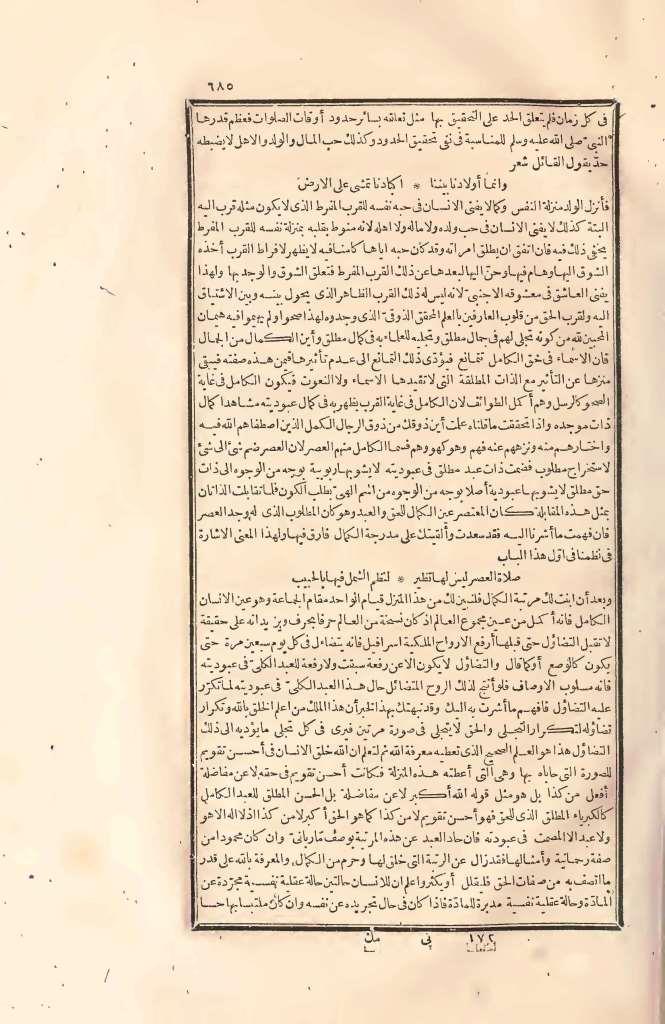 ٦٨٥
فى كل زمان فلم يتعلق الحد على التحقيق بها مثل تعلقه بسائر حدود أوقات الصلوات فعظم قدرها
النبىّ صلى الله عليه وسلم للمناسبة فى نفى تحقيق الحدود وكذلك حب المال والولد والاهل لا يضبطه
حدّ يقول القائل شعر
وانما أولادنا بيننا * اكبادنا تمشى على الارض
فأنزل الولد منزلة النفس وكما لا يفنى الانسان فى حبه نفسه للقرب المفرط الذى لا يكون مثله قرب اليه
البتة كذلك لا يفنى الانسان فى حب ولده ولا ماله ولا اهله لانه منوط بقلبه بمنزلة نفسه للقرب المفرط
يخفى ذلك فيه فان اتفق ان يطلق امراته وقد كان حبه اياها كامنا فيه لا يظهر لافراط القرب أخذه
الشوق اليها وهام فيها وحنّ اليها لبعدها عن ذلك القرب المفرط فتعلق الشوق والوجد بها ولهذا
يفنى العاشق فى معشوقه الاجنبىّ لانه ليس له ذلك القرب الظاهر الذى يحول بينه وبين الاشتياق
اليه ولقرب الحق من قلوب العارفين بالعلم المحقق الذوقىّ الذى وجدوه لهذا صحوا ولم يهيموا فيه هيمان
المحبين لله من كونه تجلى لهم فى جمال مطلق وتجليه للعلماء به فى كمال مطلق وأين الكمال من الجمال
فان الاسماء فى حق الكامل تتمانع فيؤدّى ذلك التمانع الى عدم تأثيرها فيمن هذه صفته فيبقى
منزها عن التأثير مع الذات المطلقة التى لا تقيدها الاسماء ولا النعوت فيكون الكامل فى غاية
الصحو كالرسل وهم أكمل الطوائف لان الكامل فى غاية القرب يظهر به فى كمال عبوديته مشاهدا كمال
ذات موجده واذا تحققت ما قلناه علمت أين ذوقك من ذوق الرجال الكمل الذين اصطفاهم الله فيه
واختارهم منه ونزههم عنه فهم وهو كهو وهم فسما الكامل منهم العصر لان العصر ضم شئ الى شئ
لاستخراج مطلوب فضمت ذات عبد مطلق فى عبوديته لا يشوبها ربوبية بوجه من الوجوه الى ذات
حق مطلق لا يشوبها عبودية أصلا بوجه من الوجوه من اسم الهىّ يطلب الكون فلما تقابلت الذاتان
بمثل هذه المقابلة كان المعتصر عين الكمال للحق والعبد وهو كان المطلوب الذى له وجد العصر
فان فهمت ما أشرنا اليه فقد سعدت وألقيتك على مدرجة الكمال فارق فيها ولهذا المعنى الاشارة
فى نظمنا فى اول هذا الباب
صلاة العصر ليس لها نظير * لنظم الشمل فيها بالحبيب
وبعد أن ابنت لك مرتبة الكمال فلنبين لك من هذا المنزل قيام الواحد مقام الجماعة وهو عين الانسان
الكامل فانه أكمل من عين مجموع العالم اذ كان نسخة من العالم حرفا بحرف ويزيد انه على حقيقة
لا تقبل التضاؤل حتى قبلها أرفع الارواح الملكية اسرافيل فانه يتضاءل فى كل يوم سبعين مرة حتى
يكون كالوصع أو كما قال والتضاؤل لا يكون الا عن رفعة سبقت ولا رفعة للعبد الكلىّ فى عبوديته
فانه مسلوب الاوصاف فلو أنتج لذلك الروح المتضائل حال هذا العبد الكلىّ فى عبوديته لما تكرّر
عليه التضاؤل فافهم ما أشرت به اليك وقد نبهتك بهذا الخبر أن هذا الملك من اعلم الخلق بالله وتكرار
تضاؤله لتكرار التجلى والحق لا يتجلى فى صورة مرتين فيرى فى كل تجلى ما يؤديه الى ذلك
التضاؤل هذا هو العلم الصحيح الذى تعطيه معرفة الله ثم لتعلم ان الله خلق الانسان فى أحسن تقويم
للصورة التى حاباه بها وهى التى أعطته هذه المنزلة فكانت أحسن تقويم فى حقه لا عن مفاضلة
أفعل من كذا بل هو مثل قوله الله أكبر لا عن مفاضلة بل الحسن المطلق للعبد الكامل
كالكبرياء المطلق الذى للحق فهو أحسن تقويم لا من كذا كما هو الحق أكبر لا من كذا اذ لا اله الا هو
ولا عبد الا المصمت فى عبودته فان حاد العبد عن هذه المرتبة بوصف مّا ربانىّ وان كان محمودا من
صفة رحمانية وأمثالها فقد زال عن الرتبة التى خلق لها وحرم من الكمال والمعرفة بالله على قدر
ما اتصف به من صفات الحق فليقلل أو يكثر واعلم ان للانسان حالتين حالة عقلية نفسية مجرّدة عن
المادّة وحالة عقلية نفسية مدبرة للمادّة فاذا كان فى حال تجريده عن نفسه وان كان ملتبسا بها حسا
١٧٢ نى مل